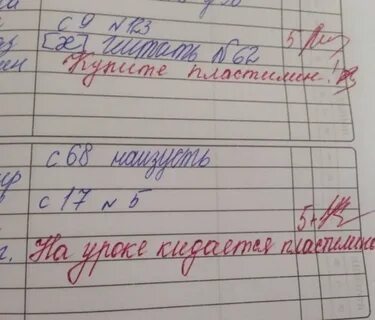 с 9 №123
[ж] читать №62 5
Купите пластилин!
с 68 наизусть
с 17 №5
5+
На уроке кидается пластилин